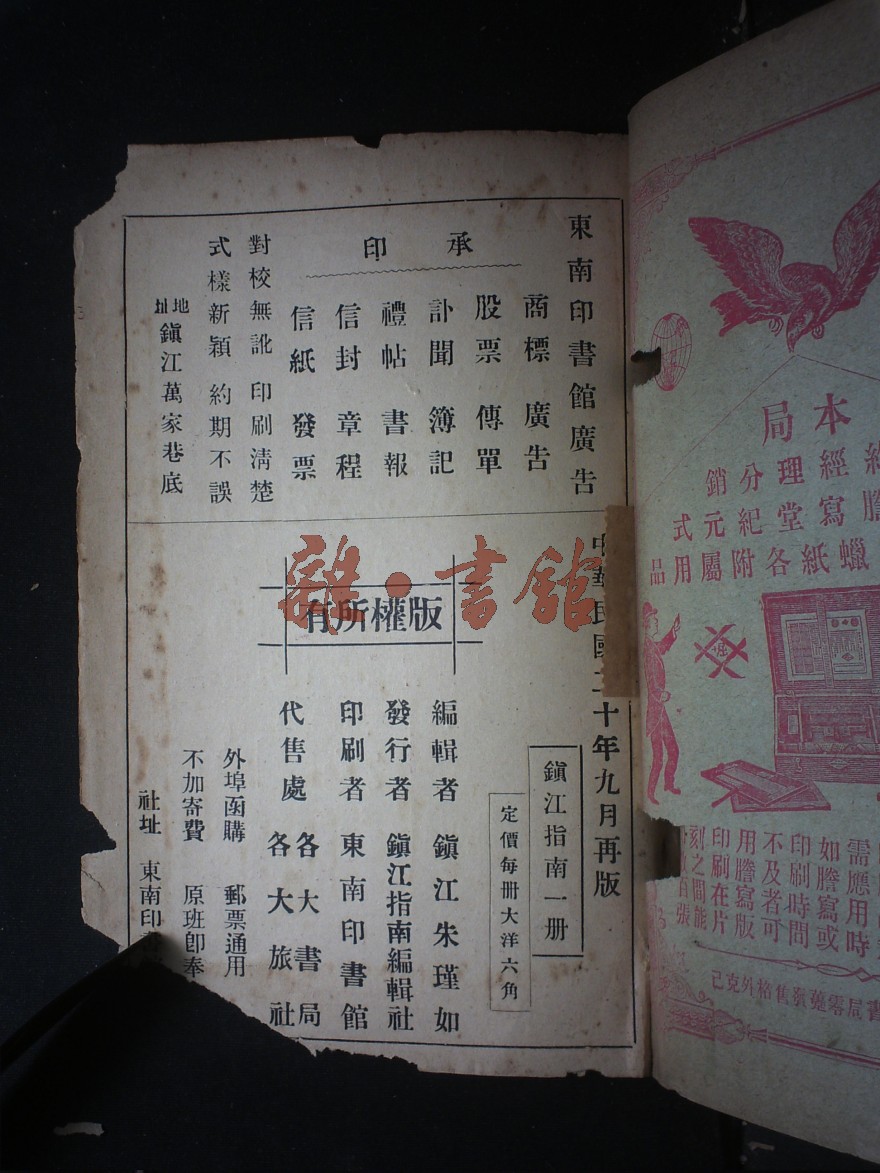 東南印書館廣告
承印
商標 廣告
股票 傳單
訃聞 簿記
禮帖 書報
信封 章程
信紙 發票
對校無訛 印刷清楚
式樣新穎 約期不誤
地址 鎭江萬家巷底
中華民國二十年九月再版
鎭江指南一册
定價每册大洋六角
版權所有
編輯者 鎭江朱瑾如
發行者 鎭江指南編輯社
印刷者 東南印書館
代售處 各大書局
各大旅社
外埠函購 郵票通用
不加寄費 原班卽奉
社址 東南印
雜·書館
本局
經理分銷
謄寫堂紀元式
蠟紙各附屬用品
堀
需應用時
如謄寫或
印刷時間
不及者可
用謄寫版
印刷在片
刻之間能
張
書局零躉發售格外克己